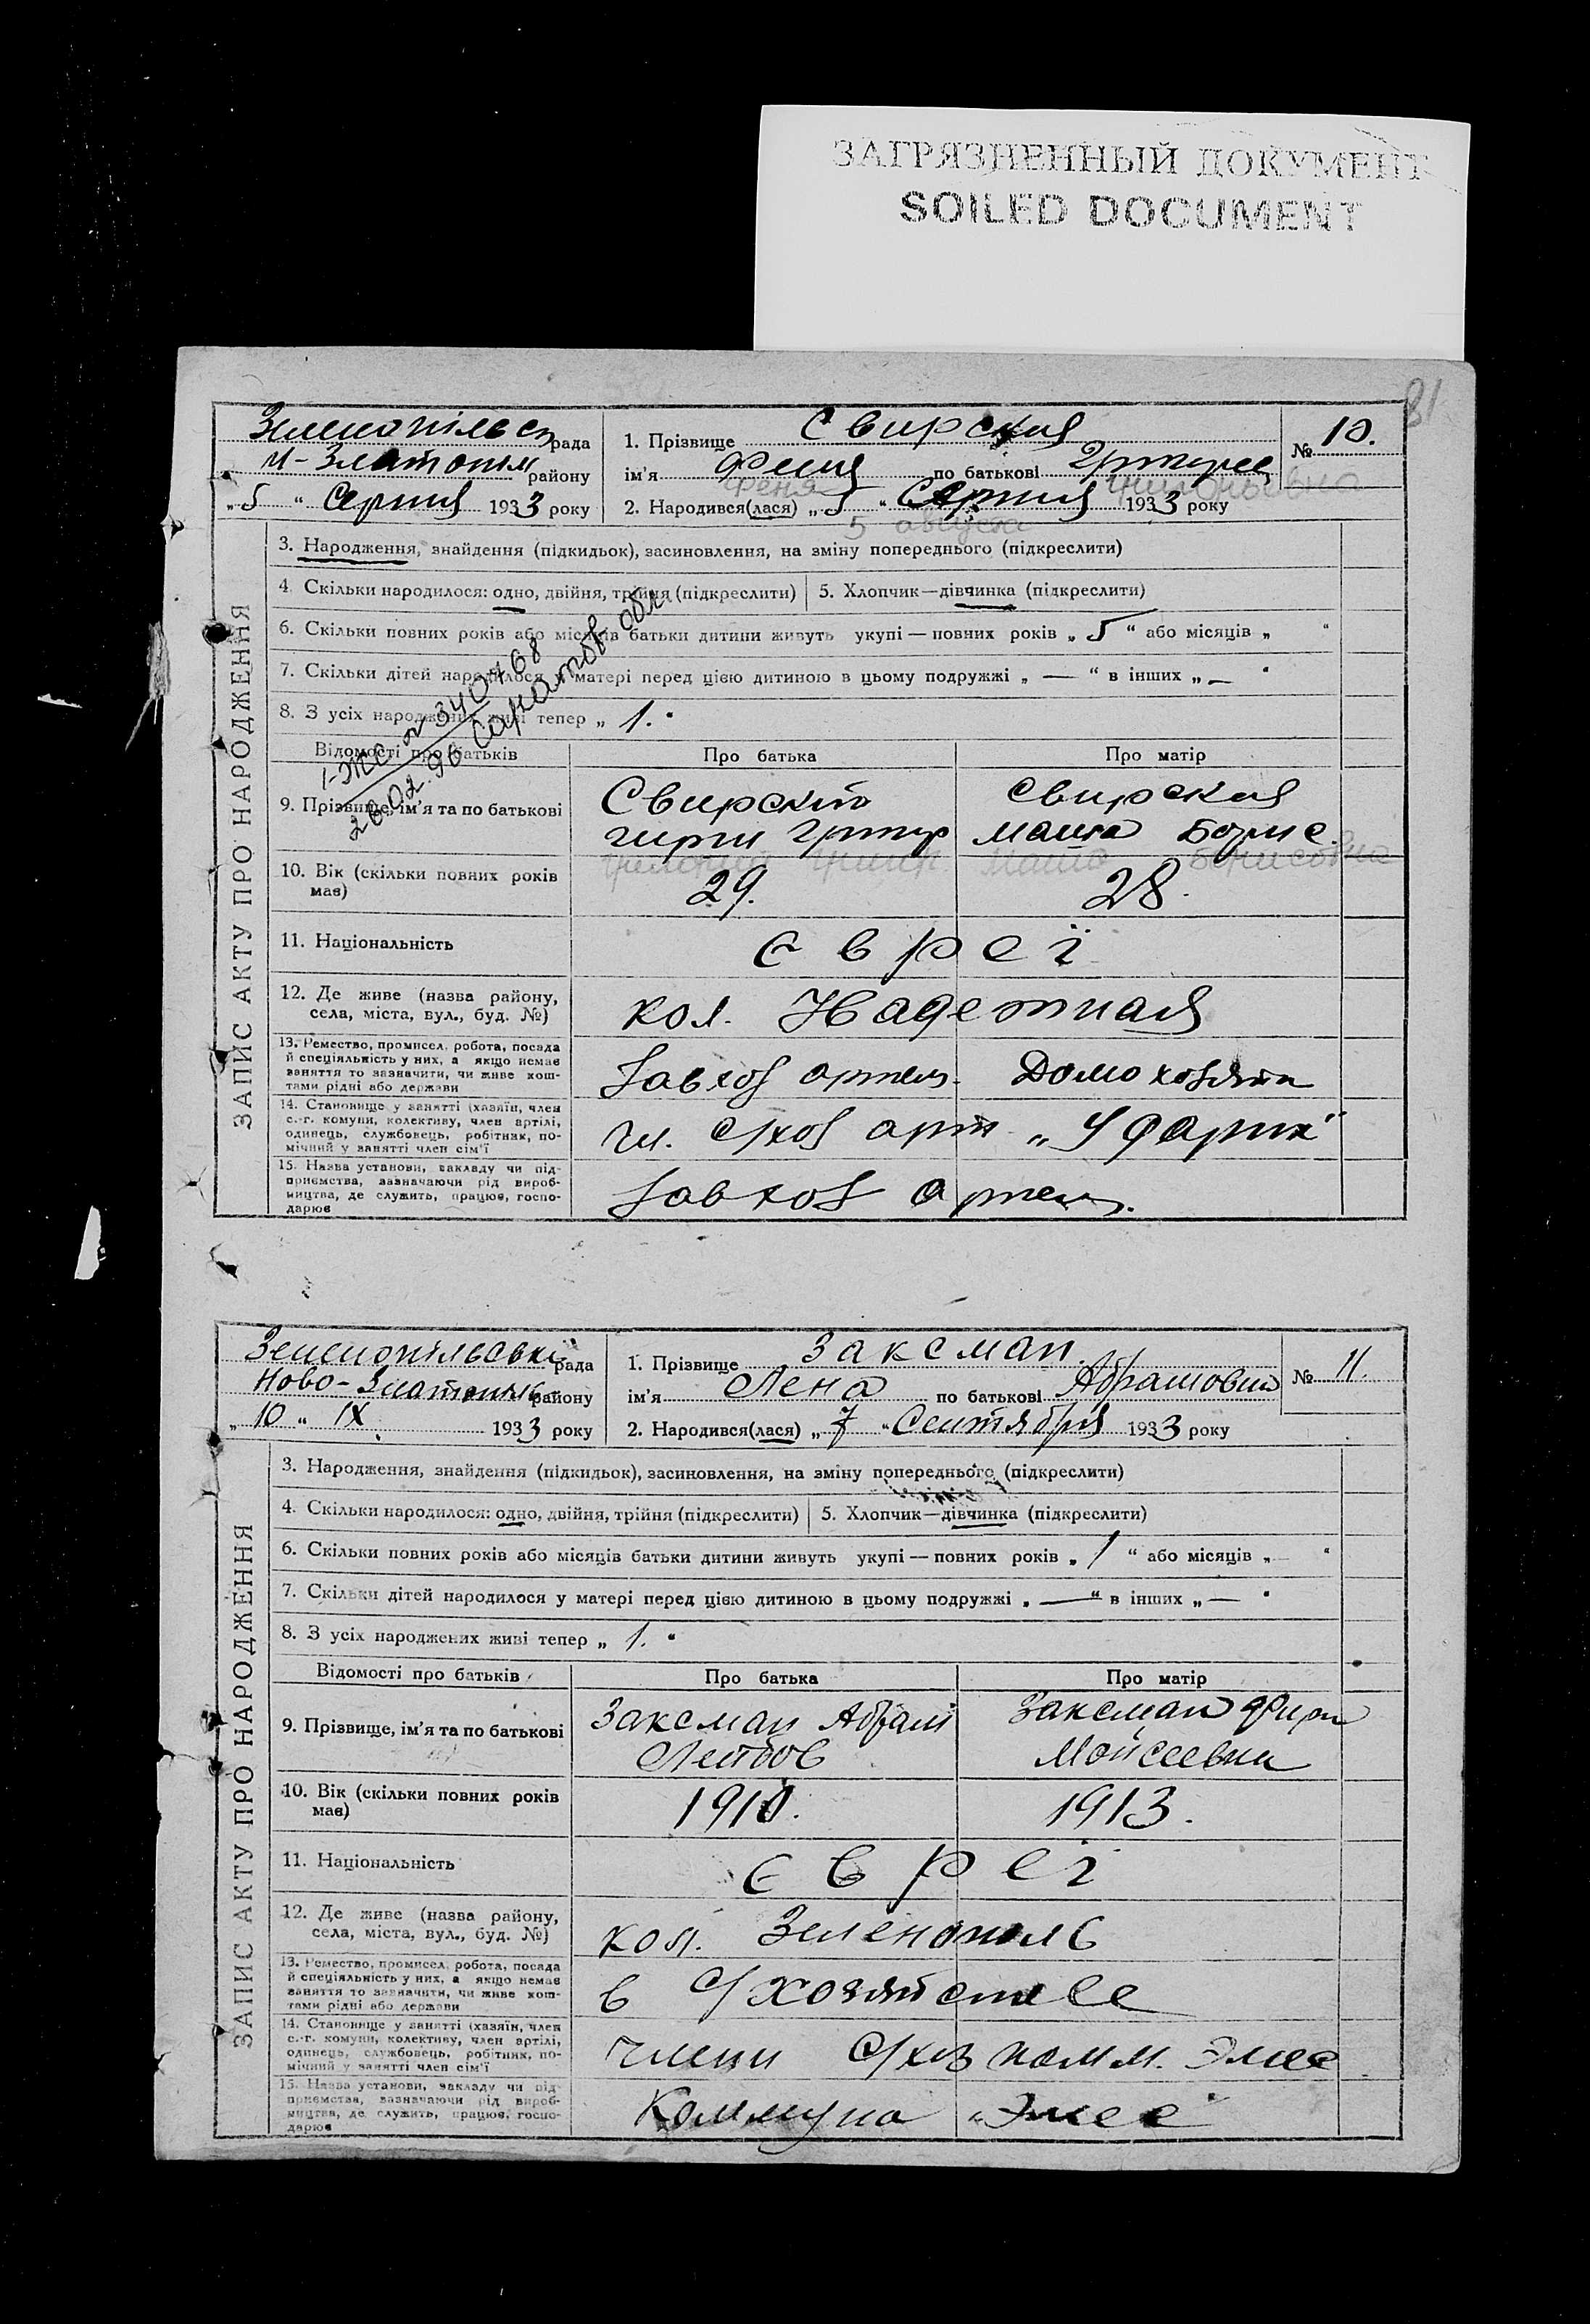 ЗАГРЯЗНЕННЫЙ ДОКУМЕНТ
SOILED DOCUMENT
81
ЗАПИС АКТУ ПРО НАРОДЖЕННЯ
рада
району
„5“ Серпня 1933 року
1. Прізвище Свирская
ім'я Феня по батькові
Феня
№ 10.
2. Народився(лася) „5“ Серпня 1933 року
5 августа
3. Народження, знайдення (підкидьок), засиновлення, на зміну попереднього (підкреслити)
4. Скільки народилося: одно, двійня, трійня (підкреслити)
5. Хлопчик—дівчинка (підкреслити)
6. Скільки повних років або місяців батьки дитини живуть укупі — повних років „5“ або місяців „ “
7. Скільки дітей народилося у матері перед цією дитиною в цьому подружжі „—“ в інших „—“
8. З усіх народжених живі тепер „1.“
1-ЖС № 340768
26.02.96 Саратов. обл.
Відомості про батьків
Про батька
Про матір
9. Прізвище, ім'я та по батькові
Свирский
Свирская
Маша
Маша Борисовна
10. Вік (скільки повних років має)
29.
28.
11. Національність
євреї
12. Де живе (назва району, села, міста, вул., буд. №)
кол. Надежная
13. Ремество, промисел, робота, посада й спеціяльність у них, а якщо немає заняття то зазначити, чи живе коштами рідні або держави
Завхоз артели.
Домохозяйка
14. Становище у занятті (хазяїн, член с.-г. комуни, колективу, член артілі, одинець, службовець, робітник, помічний у занятті член сім'ї
чл. с/хоз арт „Ударник“
15. Назва установи, закладу чи підприємства, зазначаючи рід виробництва, де служить, працює, господарює
Завхоз артели.
ЗАПИС АКТУ ПРО НАРОДЖЕННЯ
Зеленопільська рада
району
„10“ IX 1933 року
1. Прізвище Заксман
ім'я Лена по батькові Абрамовна
№ 11.
2. Народився(лася) „7“ Сентября 1933 року
3. Народження, знайдення (підкидьок), засиновлення, на зміну попереднього (підкреслити)
4. Скільки народилося: одно, двійня, трійня (підкреслити)
5. Хлопчик—дівчинка (підкреслити)
6. Скільки повних років або місяців батьки дитини живуть укупі — повних років „1“ або місяців „—“
7. Скільки дітей народилося у матері перед цією дитиною в цьому подружжі „—“ в інших „—“
8. З усіх народжених живі тепер „1.“
Відомості про батьків
Про батька
Про матір
9. Прізвище, ім'я та по батькові
Заксман Абрам
Лейбов
Заксман
Мойсеевна
10. Вік (скільки повних років має)
1910.
1913.
11. Національність
євреї
12. Де живе (назва району, села, міста, вул., буд. №)
кол. Зеленополь
13. Ремество, промисел, робота, посада й спеціяльність у них, а якщо немає заняття то зазначити, чи живе коштами рідні або держави
в с/хозяйстве
14. Становище у занятті (хазяїн, член с.-г. комуни, колективу, член артілі, одинець, службовець, робітник, помічний у занятті член сім'ї
члени с/хоз комм. Эмес
15. Назва установи, закладу чи підприємства, зазначаючи рід виробництва, де служить, працює, господарює
Коммуна „Эмес“